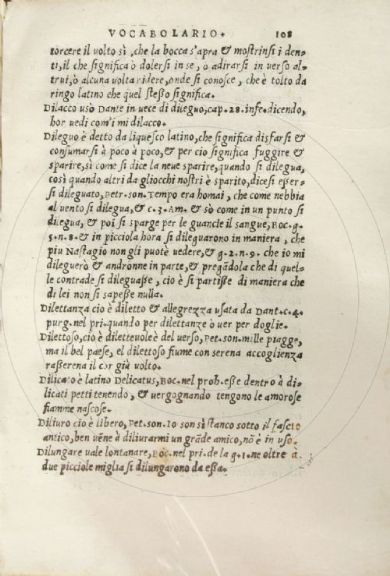 VOCABOLARIO. 108
torcere il volto sì, che la bocca s'apra & mostrinsi i den-
ti, il che significa ò dolersi in se, o adirarsi in verso al-
trui, ò alcuna volta ridere, onde si conosce, che è tolto da
ringo latino che quel stesso significa.
Dilacco usò Dante in vece di dileguo, cap. 28. infe. dicendo,
hor vedi com'i mi dilacco.
Dileguo è detto da liquesco latino, che significa disfarsi &
consumarsi à poco à poco, & per cio significa fuggire &
sparire, sì come si dice la neve sparire, quando si dilegua,
così quando altri da gliocchi nostri è sparito, dicesi esser-
si dileguato, Petr. son. Tempo era homai, che come nebbia
al vento si dilegua, & c. 3. Am. & sò come in un punto si
dilegua, & poi si sparge per le guancie il sangue, Boc. g.
5. n. 8. & in picciola hora si dileguarono in maniera, che
piu Nastagio non gli puotè vedere, & g. 2. n. 9. che io mi
dileguerò & andronne in parte, & pregãdola che di quel-
le contrade si dileguasse, cio è si partisse di maniera che
di lei non si sapesse nulla.
Dilettanza cio è diletto & allegrezza usata da Dant. c. 4.
purg. nel pri. quando per dilettanze ò ver per doglie.
Dilettoso, cio è dilettevole è del verso, Pet. son. mille piagge,
ma il bel paese, el dilettoso fiume con serena accoglienza
rasserena il cor già volto.
Dilicato è latino Delicatus, Boc. nel proh. esse dentro à di-
licati petti tenendo, & vergognando tengono le amorose
fiamme nascose.
Diliuro cio è libero, Pet. son. Io son sì stanco sotto il fascio
antico, ben vēne à diliurarmi un grāde amico, nō è in uso.
Dilungare vale lontanare, Boc. nel pri. de la g. 1. ne oltre à
due picciole miglia si dilungarono da essa.